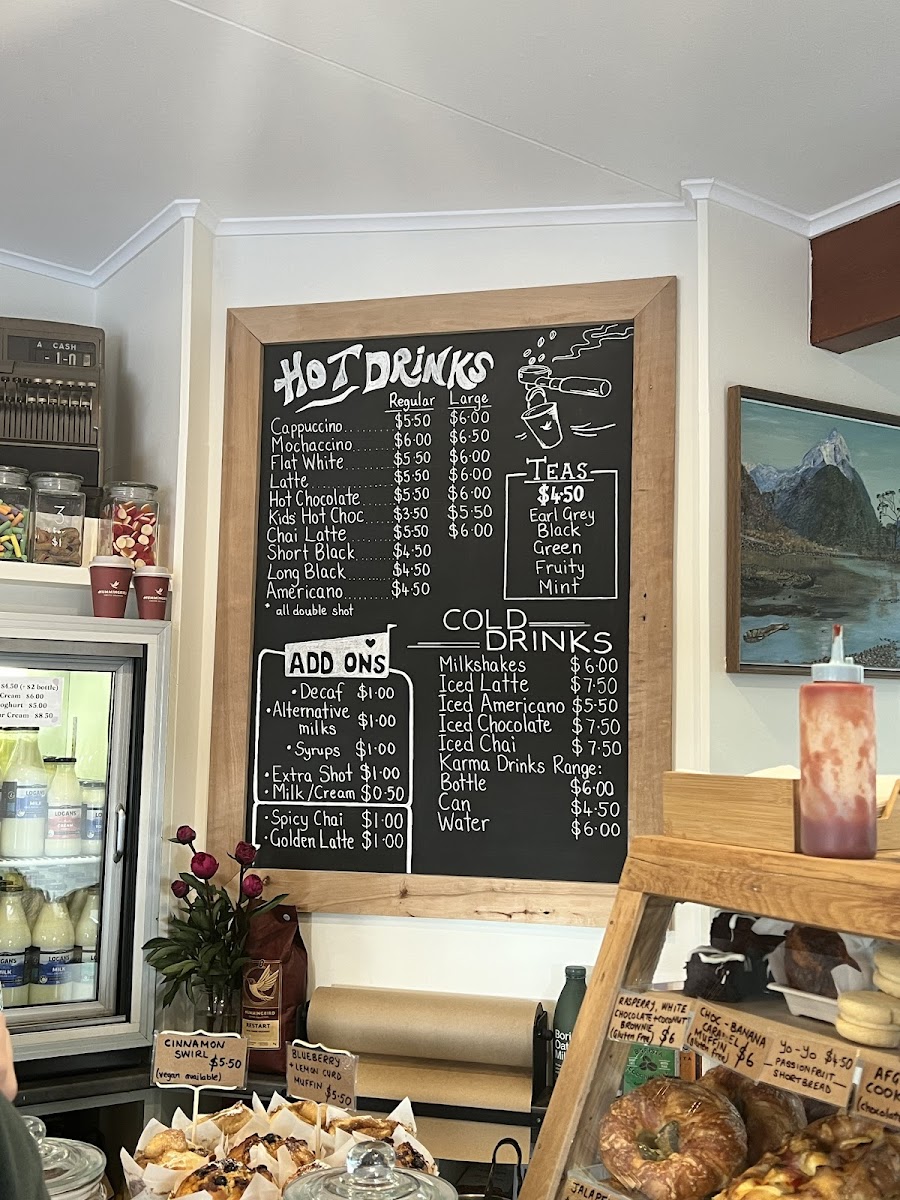 A CASH
-1-0
HOT DRINKS
Regular Large
Cappuccino $5.50 $6.00
Mochaccino $6.00 $6.50
Flat White $5.50 $6.00
Latte $5.50 $6.00
Hot Chocolate $5.50 $6.00
Kids Hot Choc $3.50 $5.50
Chai Latte $5.50 $6.00
Short Black $4.50
Long Black $4.50
Americano $4.50
* all double shot
TEAS
$4.50
Earl Grey
Black
Green
Fruity
Mint
ADD ONS
• Decaf $1.00
• Alternative milks $1.00
• Syrups $1.00
• Extra Shot $1.00
• Milk/Cream $0.50
• Spicy Chai $1.00
• Golden Latte $1.00
COLD DRINKS
Milkshakes $6.00
Iced Latte $7.50
Iced Americano $5.50
Iced Chocolate $7.50
Iced Chai $7.50
Karma Drinks Range:
Bottle $6.00
Can $4.50
Water $6.00
3
$1
HUMMINGBIRD
HUMMINGBIRD
$4.50 (- $2 bottle)
Cream $6.00
oghurt $5.00
r Cream $8.50
LOGANS
MILK
LOGANS
CREAM
LO
LOGANS
MILK
LOGANS
MILK
HUMMINGBIRD
RESTART
Bori
Oat
Milk
CINNAMON
SWIRL $5.50
(vegan available)
BLUEBERRY
+ LEMON CURD
MUFFIN $5.50
RASPERRY, WHITE
CHOCOLATE + COCONUT
BROWNIE $6
(Gluten Free)
CHOC - BANANA
CARAMEL
MUFFIN $6
(gluten free)
YO-YO $4.50
PASSIONFRUIT
SHORTBREAD
AFG
COOK
(chocolat
JALAPE